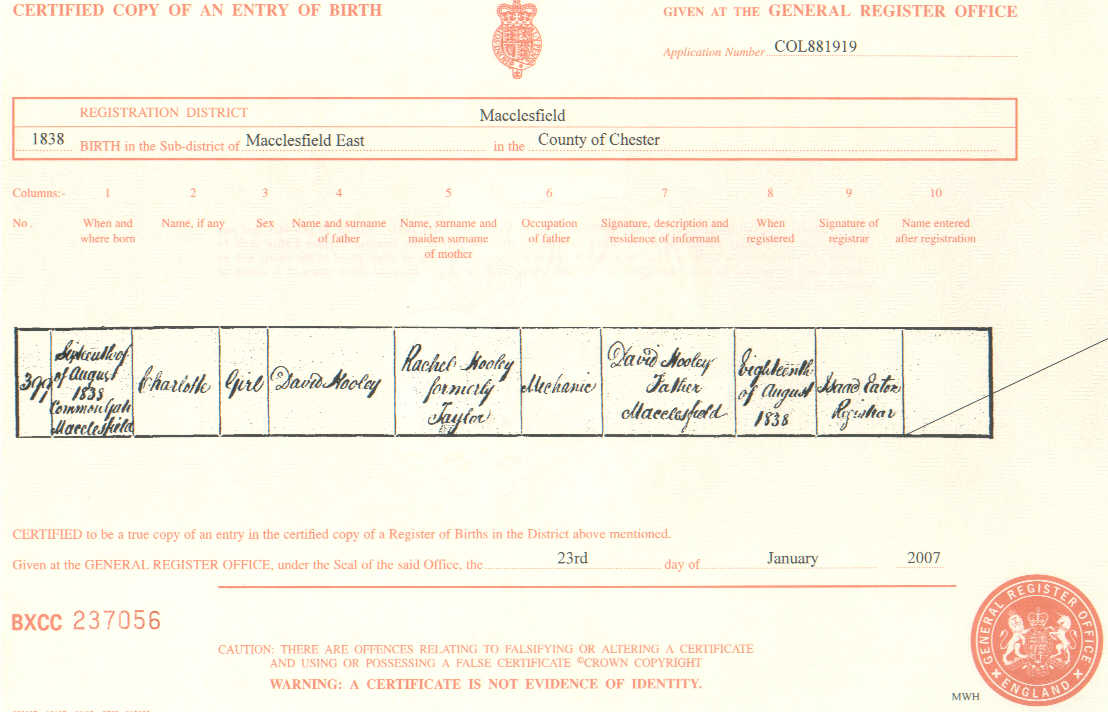 CERTIFIED COPY OF AN ENTRY OF BIRTH
GIVEN AT THE GENERAL REGISTER OFFICE
Application Number COL881919
REGISTRATION DISTRICT Macclesfield
1838 BIRTH in the Sub-district of Macclesfield East in the County of Chester
Columns:- 1 2 3 4 5 6 7 8 9 10
No. When and where born
Name, if any
Sex
Name and surname of father
Name, surname and maiden surname of mother
Occupation of father
Signature, description and residence of informant
When registered
Signature of registrar
Name entered after registration
399
of August
1838
Macclesfield
Charlotte
Girl
David Hooley
Rachel Hooley
formerly
Taylor
Mechanic
David Hooley
Father
Macclesfield
Eighteenth
of August
1838
Isaac Eaton
Registrar
CERTIFIED to be a true copy of an entry in the certified copy of a Register of Births in the District above mentioned.
Given at the GENERAL REGISTER OFFICE, under the Seal of the said Office, the 23rd day of January 2007
BXCC 237056
CAUTION: THERE ARE OFFENCES RELATING TO FALSIFYING OR ALTERING A CERTIFICATE
AND USING OR POSSESSING A FALSE CERTIFICATE ©CROWN COPYRIGHT
WARNING: A CERTIFICATE IS NOT EVIDENCE OF IDENTITY.
GENERAL REGISTER OFFICE
ENGLAND
MWH